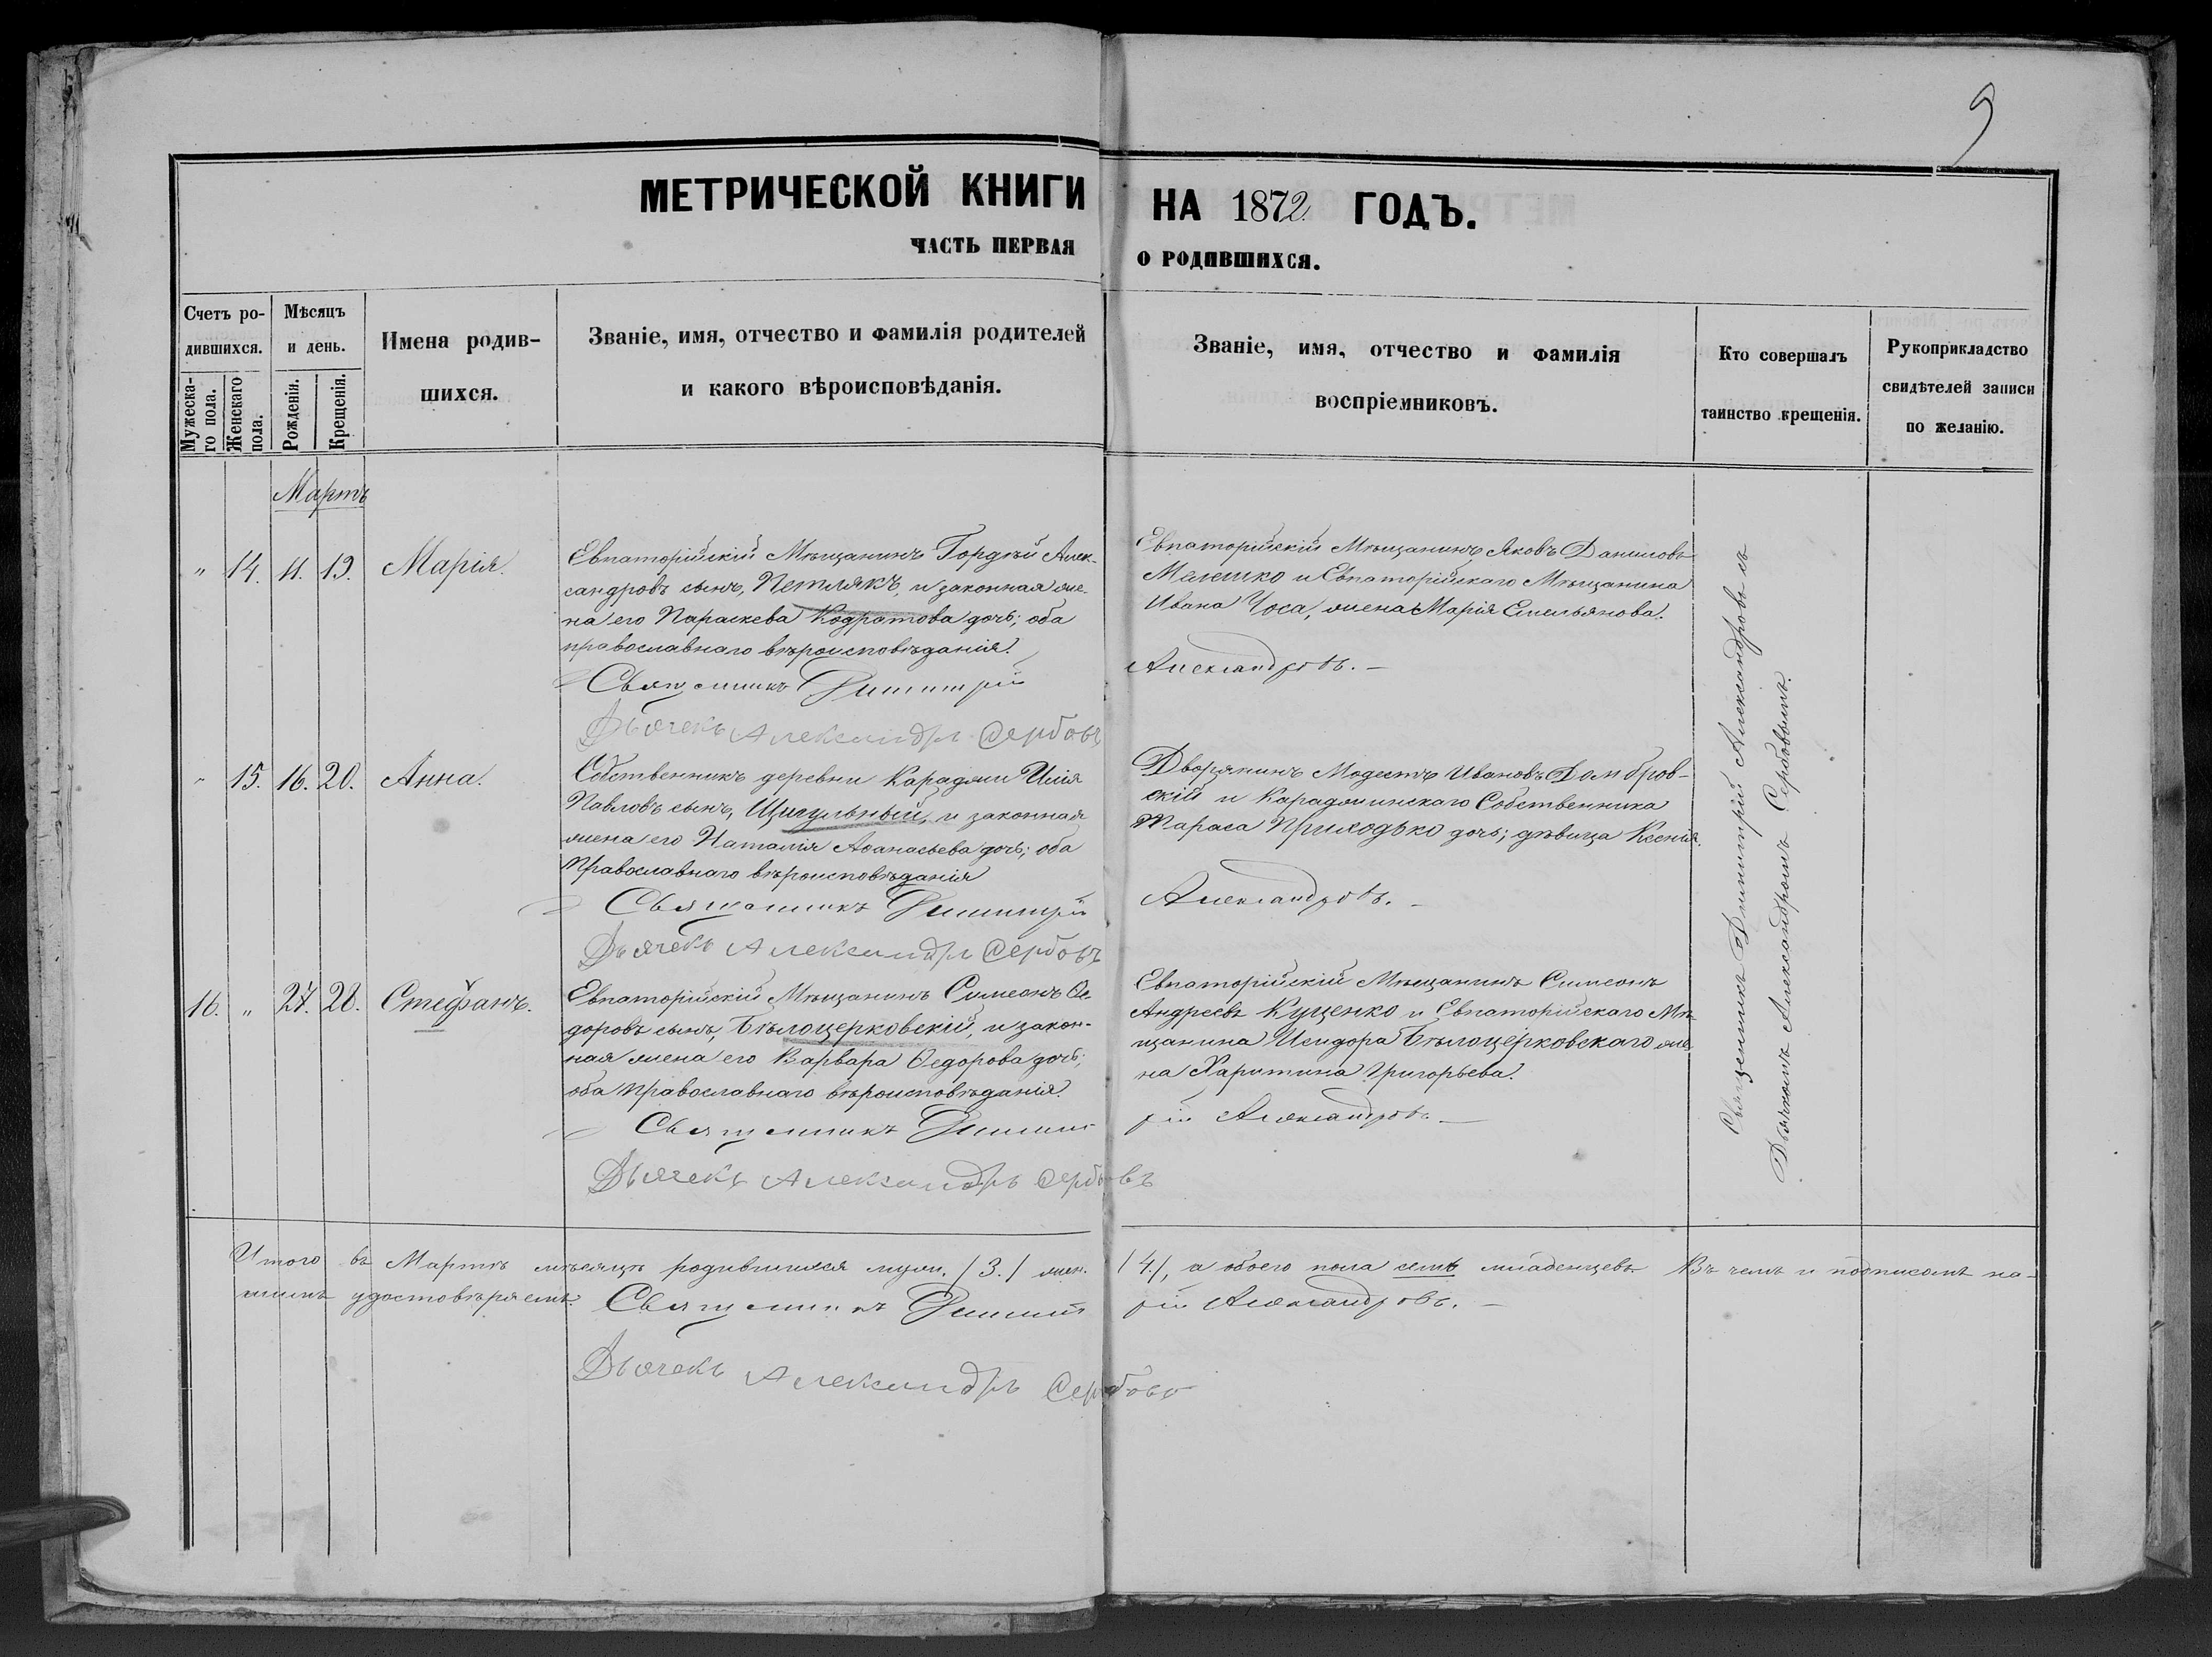 9
МЕТРИЧЕСКОЙ КНИГИ НА 1872 ГОДЪ.
ЧАСТЬ ПЕРВАЯ О РОДИВШИХСЯ.
Счетъ ро-
дившихся.
Мужеска-
го пола.
Женскаго
пола.
Мѣсяцъ
и день.
Рожденія.
Крещенія.
Имена родив-
шихся.
Званіе, имя, отчество и фамилія родителей
и какого вѣроисповѣданія.
Званіе, имя, отчество и фамилія
воспріемниковъ.
Кто совершалъ
таинство крещенія.
Рукоприкладство
свидѣтелей записи
по желанію.
Мартъ
" 14. 11. 19. Марія.
Евпаторійскій Мѣщанинъ Гордѣй Алек-
сандровъ сынъ, Петлякъ, и законная же-
на его Параскева Кодратова дочь; оба
православнаго вѣроисповѣданія.
Евпаторійскій Мѣщанинъ Яковъ Даниловъ
Мелешко и Евпаторійскаго Мѣщанина
Ивана Чоса, жена Марія Емельянова.
Священникъ Димитрій Александровъ.
Дьячекъ Александръ Сербовъ
" 15. 16. 20. Анна.
Собственникъ деревни Караджи Илія
Павловъ сынъ, Щигульный, и законная
жена его Наталія Аѳанасьева дочь; оба
Православнаго вѣроисповѣданія
Дворянинъ Модестъ Ивановъ Домбров-
скій и Караджинскаго Собственника
Тараса Приходько дочь; дѣвица Ксенія.
Священникъ Димитрій Александровъ.
Дьячекъ Александръ Сербовъ
16. " 27. 28. Стефанъ.
Евпаторійскій Мѣщанинъ Симеонъ Ѳе-
доровъ сынъ, Бѣлоцерковскій, и закон-
ная жена его Варвара Ѳедорова дочь;
оба Православнаго вѣроисповѣданія.
Евпаторійскій Мѣщанинъ Симеонъ
Андреевъ Куценко и Евпаторійскаго Мѣ-
щанина Исидора Бѣлоцерковскаго же-
на Харитина Григорьева.
Священникъ Димитрій Александровъ
Дьячекъ Александръ Сербовъ
Священникъ Димитрій Александровъ съ
Дьячкомъ Александромъ Сербовымъ.
Итого въ Мартѣ мѣсяцѣ родившихся муж. /3./ жен. /4./, а обоего пола семь младенцевъ. Въ чемъ и подписомъ на-
шимъ удостовѣряемъ. Священникъ Димитрій Александровъ.
Дьячекъ Александръ Сербовъ